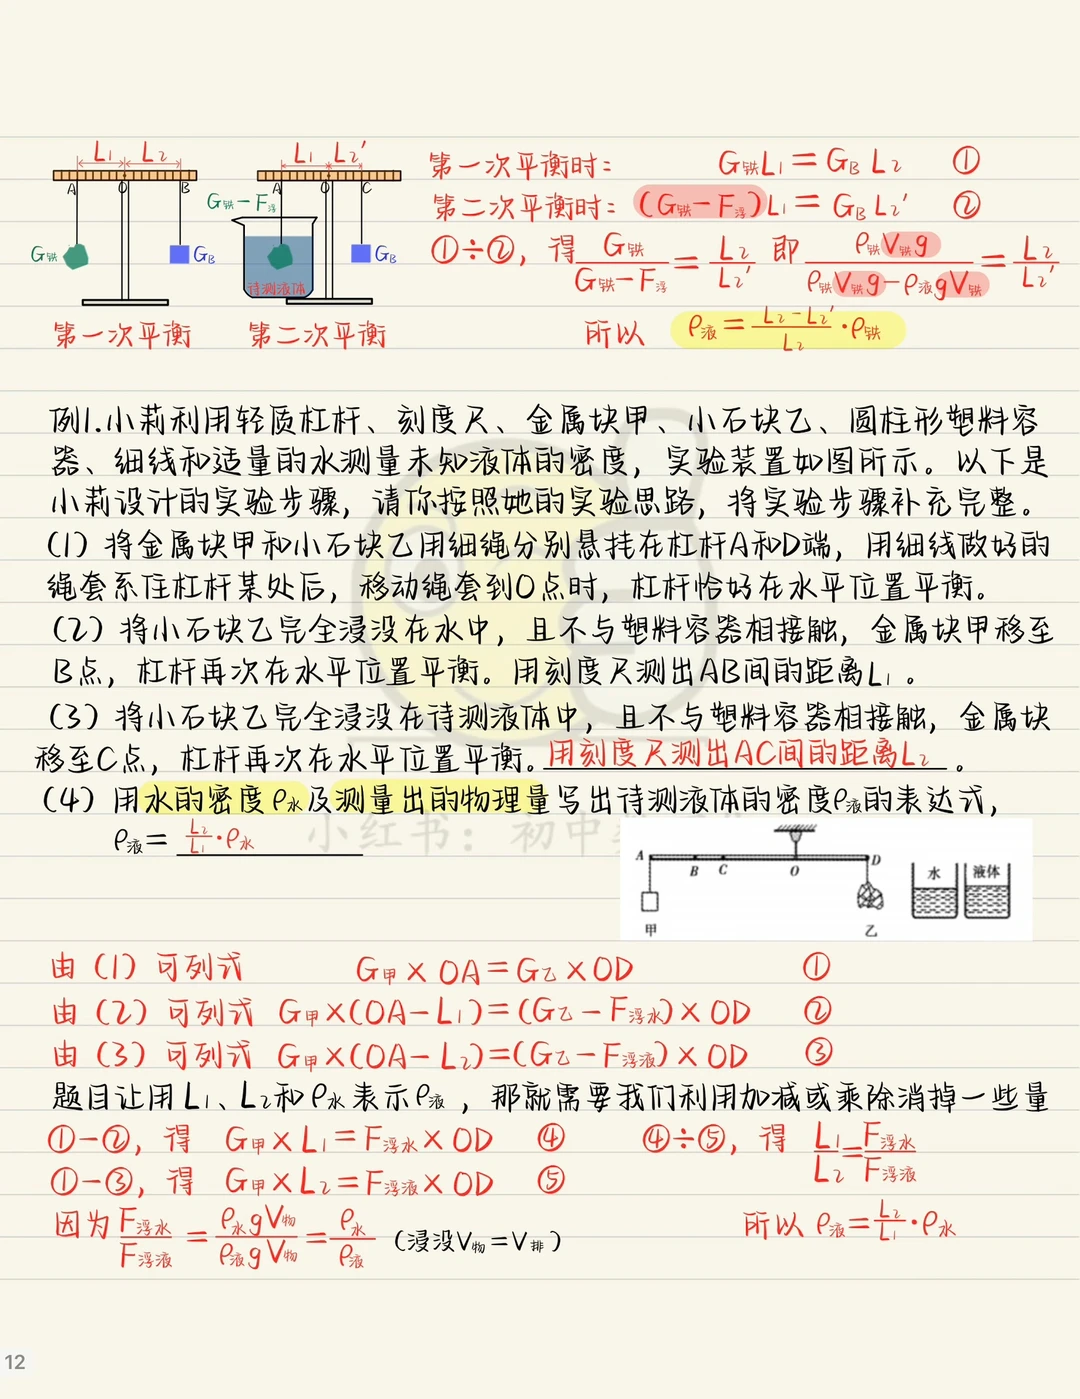 L₁ L₂
A O B
G铁 GB
第一次平衡
L₁ L₂′
A O C
G铁-F浮
GB
待测液体
第二次平衡
第一次平衡时： G铁L₁=GB L₂ ①
第二次平衡时：(G铁-F浮)L₁=GB L₂′ ②
①÷②，得 G铁/(G铁-F浮) = L₂/L₂′ 即 ρ铁V铁g/(ρ铁V铁g-ρ液gV铁) = L₂/L₂′
所以 ρ液=(L₂-L₂′)/L₂·ρ铁
例1.小莉利用轻质杠杆、刻度尺、金属块甲、小石块乙、圆柱形塑料容
器、细线和适量的水测量未知液体的密度，实验装置如图所示。以下是
小莉设计的实验步骤，请你按照她的实验思路，将实验步骤补充完整。
(1)将金属块甲和小石块乙用细绳分别悬挂在杠杆A和D端，用细线做好的
绳套系住杠杆某处后，移动绳套到O点时，杠杆恰好在水平位置平衡。
(2)将小石块乙完全浸没在水中，且不与塑料容器相接触，金属块甲移至
B点，杠杆再次在水平位置平衡。用刻度尺测出AB间的距离L₁。
(3)将小石块乙完全浸没在待测液体中，且不与塑料容器相接触，金属块
移至C点，杠杆再次在水平位置平衡。用刻度尺测出AC间的距离L₂。
(4)用水的密度ρ水及测量出的物理量写出待测液体的密度ρ液的表达式，
ρ液= L₂/L₁·ρ水
小红书：初中
A B C O D
甲 乙 水 液体
由(1)可列式 G甲×OA=G乙×OD ①
由(2)可列式 G甲×(OA-L₁)=(G乙-F浮水)×OD ②
由(3)可列式 G甲×(OA-L₂)=(G乙-F浮液)×OD ③
题目让用L₁、L₂和ρ水表示ρ液，那就需要我们利用加减或乘除消掉一些量
①-②，得 G甲×L₁=F浮水×OD ④ ④÷⑤，得 L₁/L₂=F浮水/F浮液
①-③，得 G甲×L₂=F浮液×OD ⑤
因为 F浮水/F浮液 = ρ水gV物/ρ液gV物 = ρ水/ρ液 (浸没V物=V排) 所以 ρ液=L₂/L₁·ρ水
12